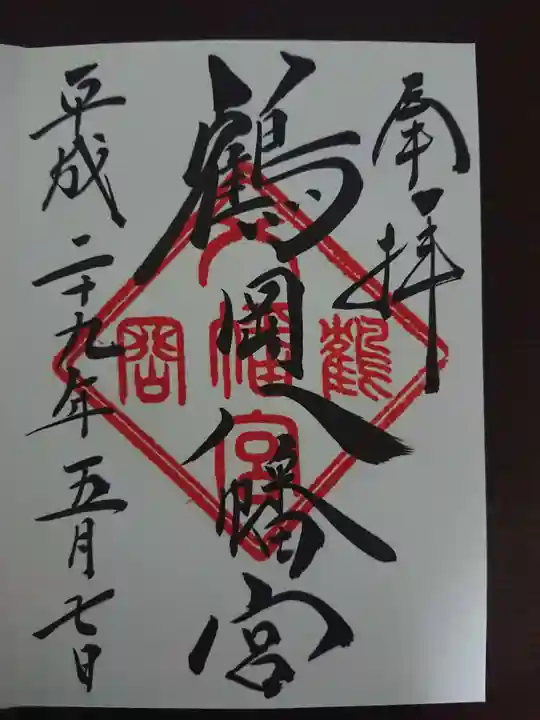 奉拝
鶴岡八幡宮
鶴
八幡宮
岡
平成二十九年五月七日